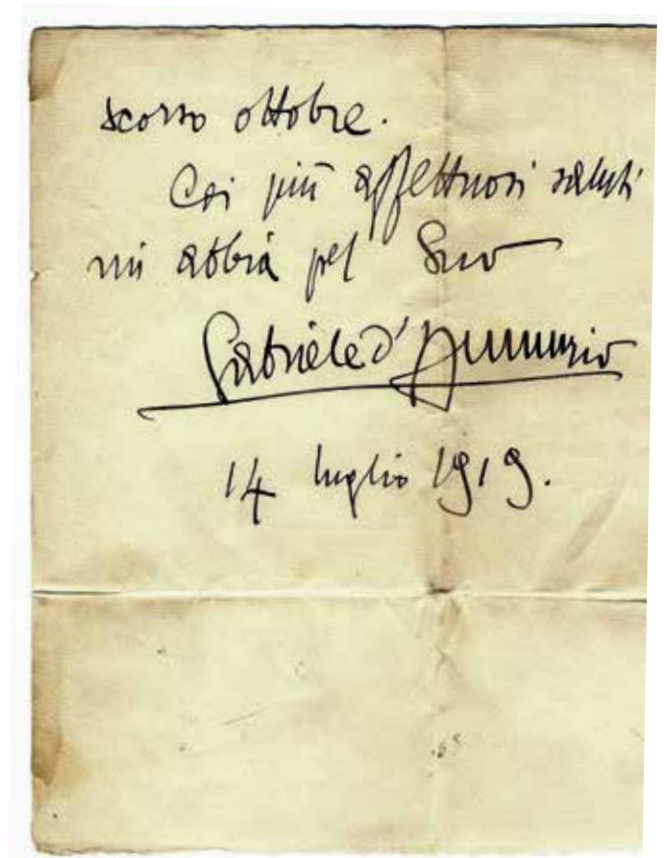 scorso ottobre.
Coi più affettuosi saluti
mi abbia pel Suo
Gabriele d'Annunzio
14 luglio 1919.